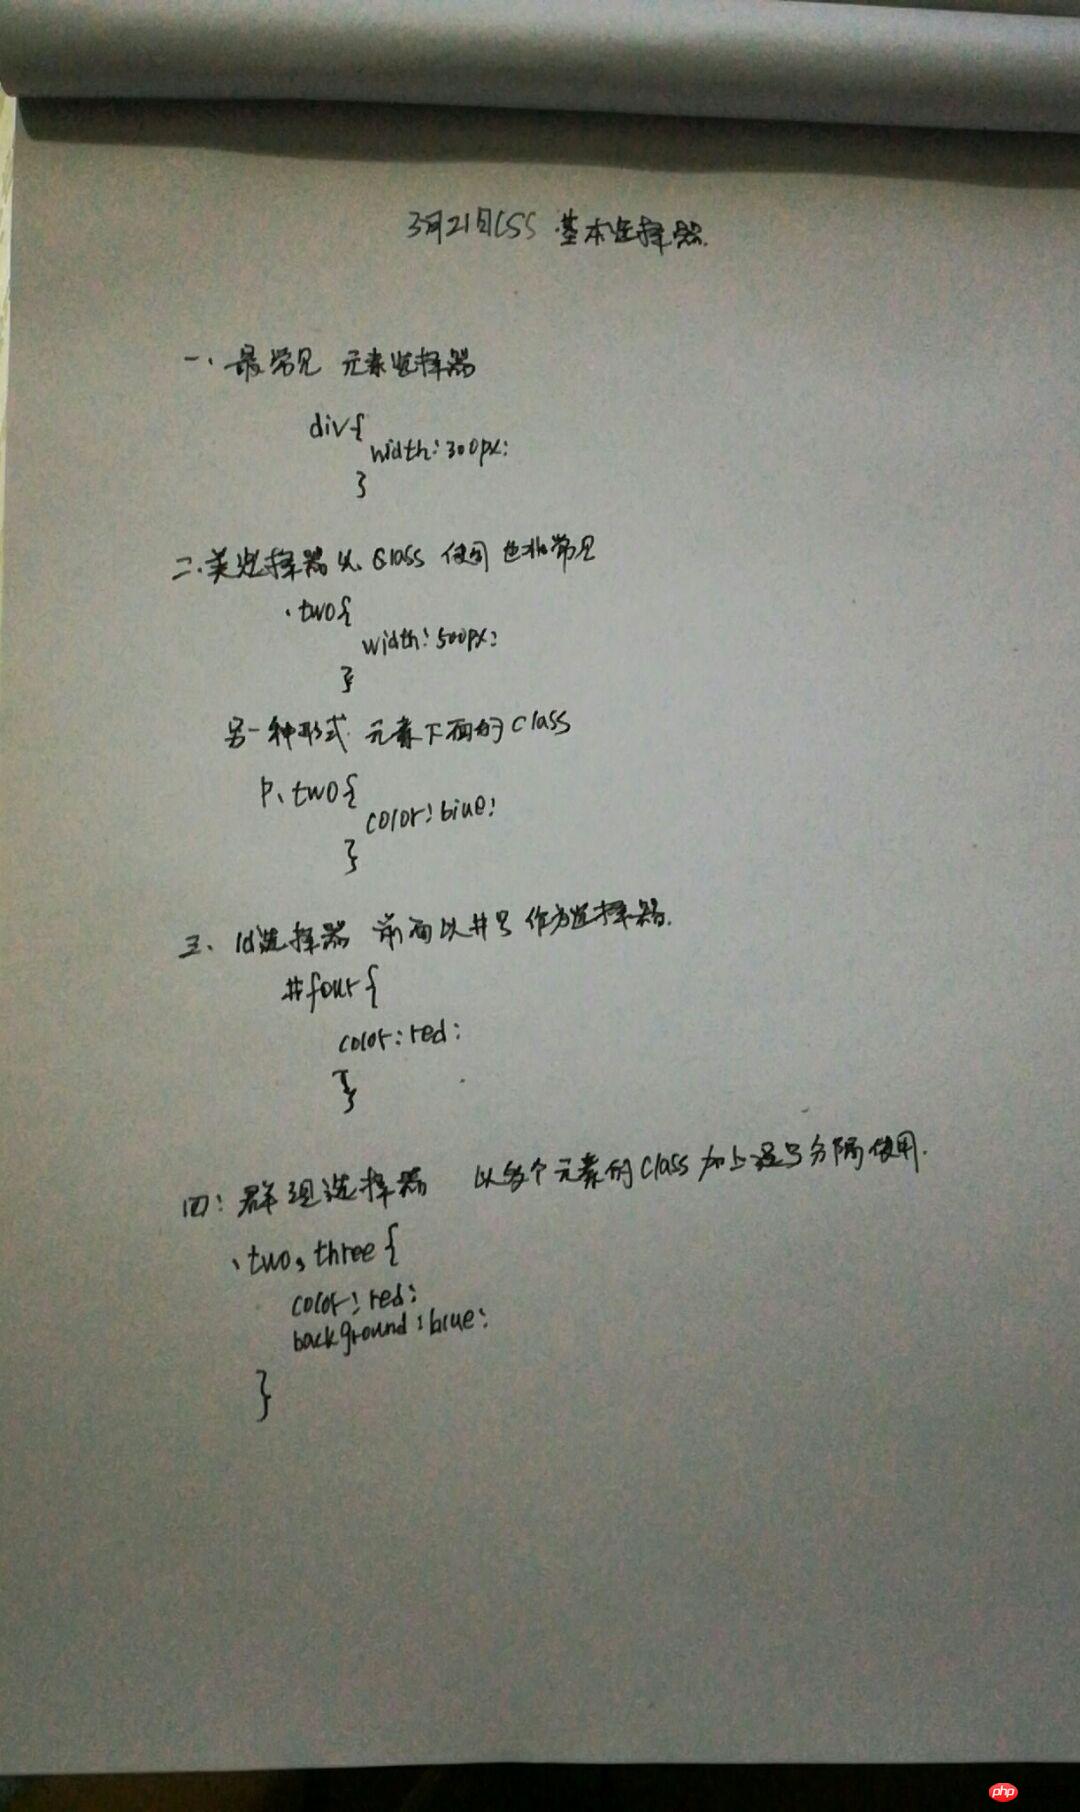 3月21日CSS 基本选择器.
一、最常见 元素选择器
div{
width:300px;
}
二.类选择器 以 Class 使用 也非常见
.two{
width:500px;
}
另一种形式 元素下面的class
p.two{
color:blue;
}
三、Id选择器 前面以井号 作为选择器.
#four{
color:red;
}
四:群组选择器 以多个元素的class加上逗号分隔使用.
.two,three{
color:red;
background:blue;
}
php